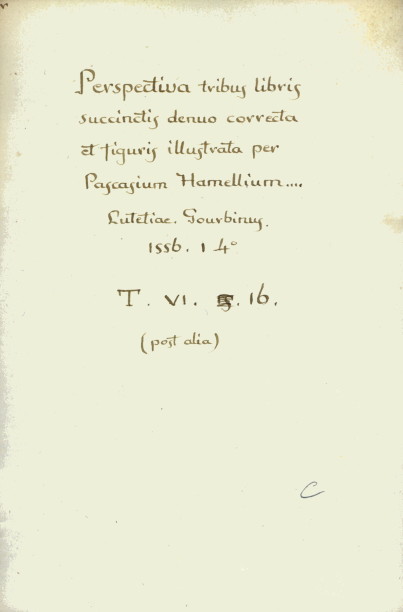 Perspectiva tribus libris
succinctis denuo correcta
et figuris illustrata per
Pascasium Hamellium....
Lutetiae. Gourbinus.
1556. 1 4°
T. VI. 16.
(post alia)
C